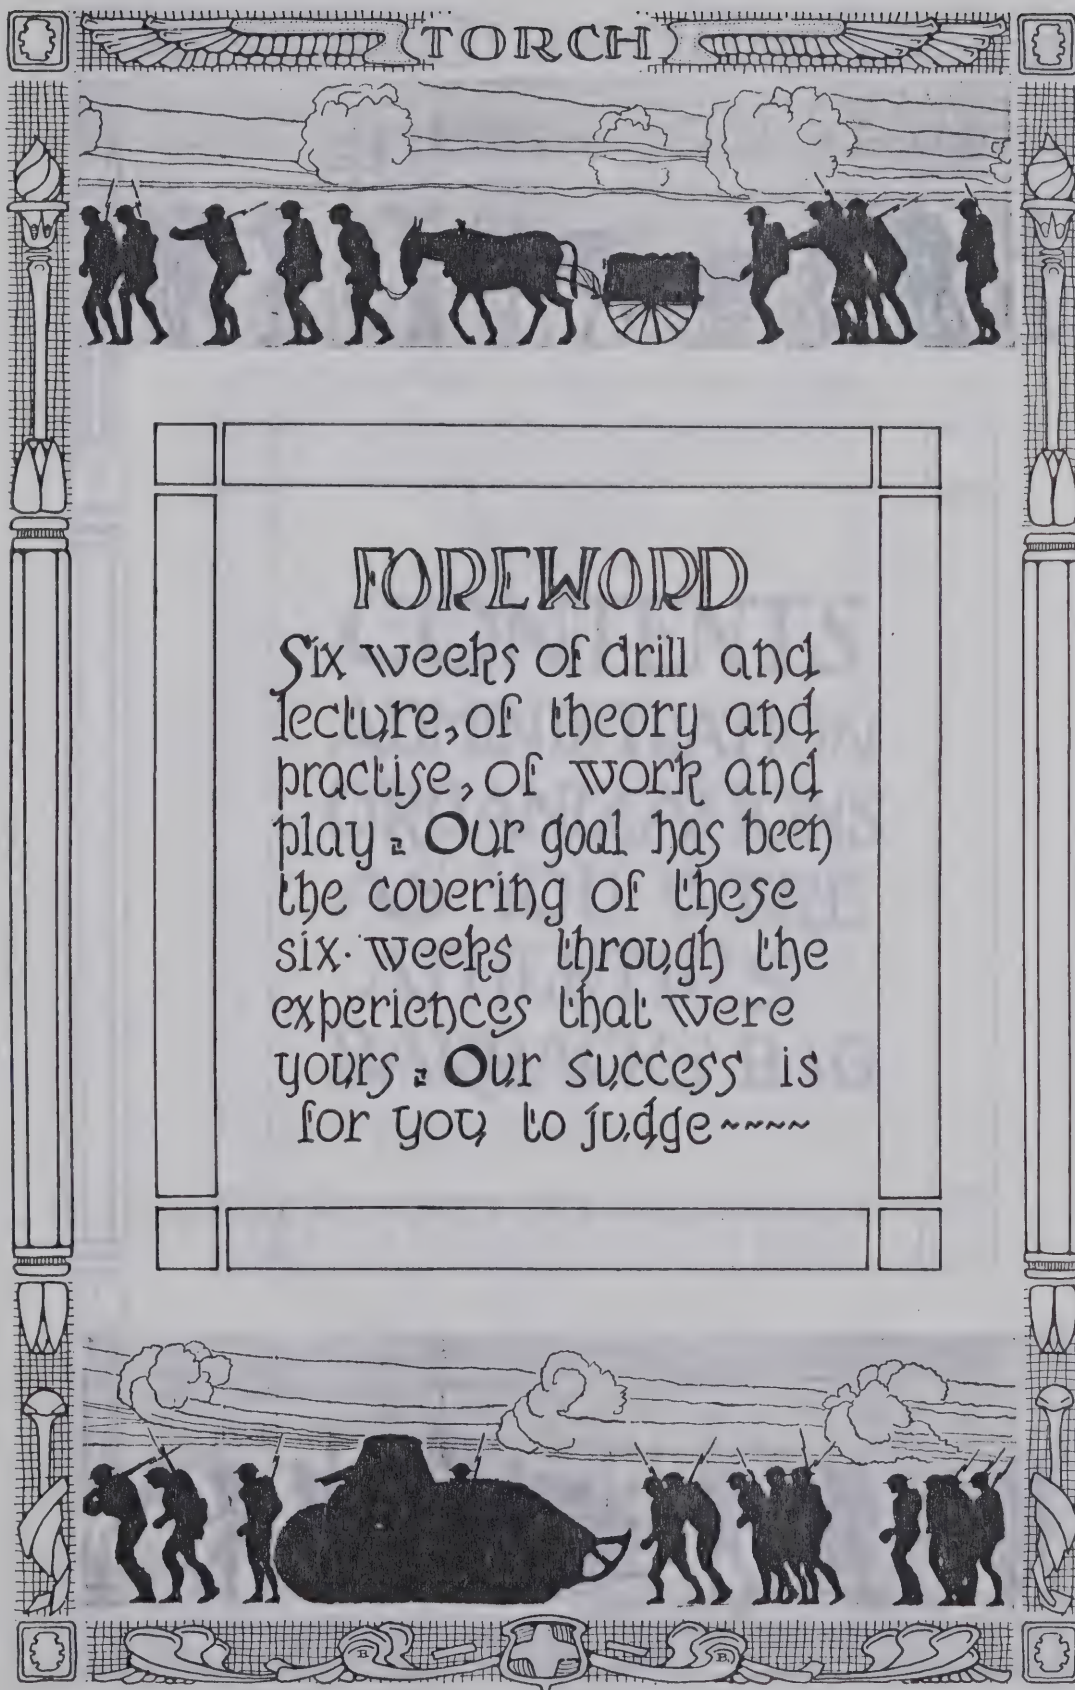 TORCH
FOREWORD
Six weeks of drill and
lecture, of theory and
practise, of work and
play. Our goal has been
the covering of these
six weeks through the
experiences that were
yours. Our success is
for you to judge ~~~~
B
B.